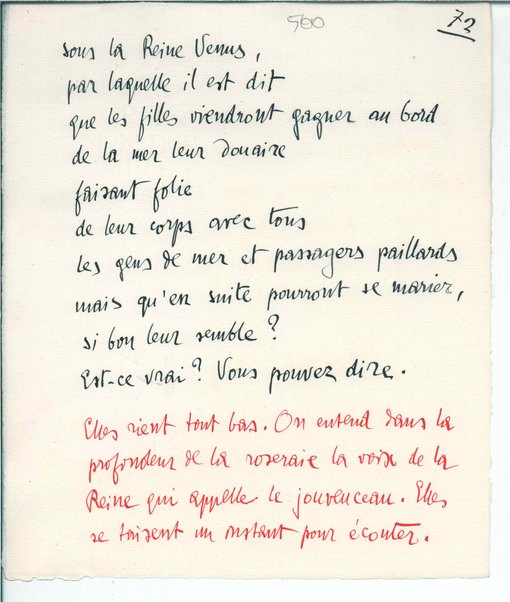 500
72
sous la Reine Venus,
par laquelle il est dit
que les filles viendront gagner au bord
de la mer leur douaire
faisant folie
de leur corps avec tous
les gens de mer et passagers paillards
mais qu'en suite pourront se marier,
si bon leur semble ?
Est-ce vrai ? Vous pouvez dire.
Elles rient tout bas. On entend dans la
profondeur de la roseraie la voix de la
Reine qui appelle le jouvenceau. Elles
se taisent un instant pour écouter.